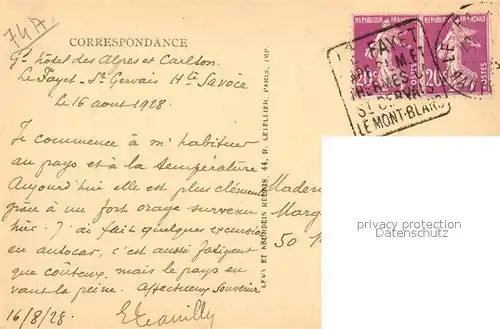 74A
CORRESPONDANCE
Gd hôtel des Alpes et Carlton
Le Fayet-St Gervais Hte Savoie
Le 16 aout 1928.
Je commence à m'habituer
au pays et à la température
Aujourd'hui elle est plus clémente
grâce à un fort orage survenu
hier. J'ai fait quelques excursions
en autocar, c'est aussi fatigant
que coûteux, mais le pays en
vaut la peine. Affectueux Souvenir
16/8/28.
LEVY ET NEURDEIN RÉUNIS, 44, R. LETELLIER, PARIS, IMP.
REPUBLIQUE FRANCAISE
REPUBLIQUE FRANCAISE
20c
POSTES
LE FAYET
THERMES
ST GERVAIS
LE MONT-BLANC
Madem
Marg
50
privacy protection
Datenschutz